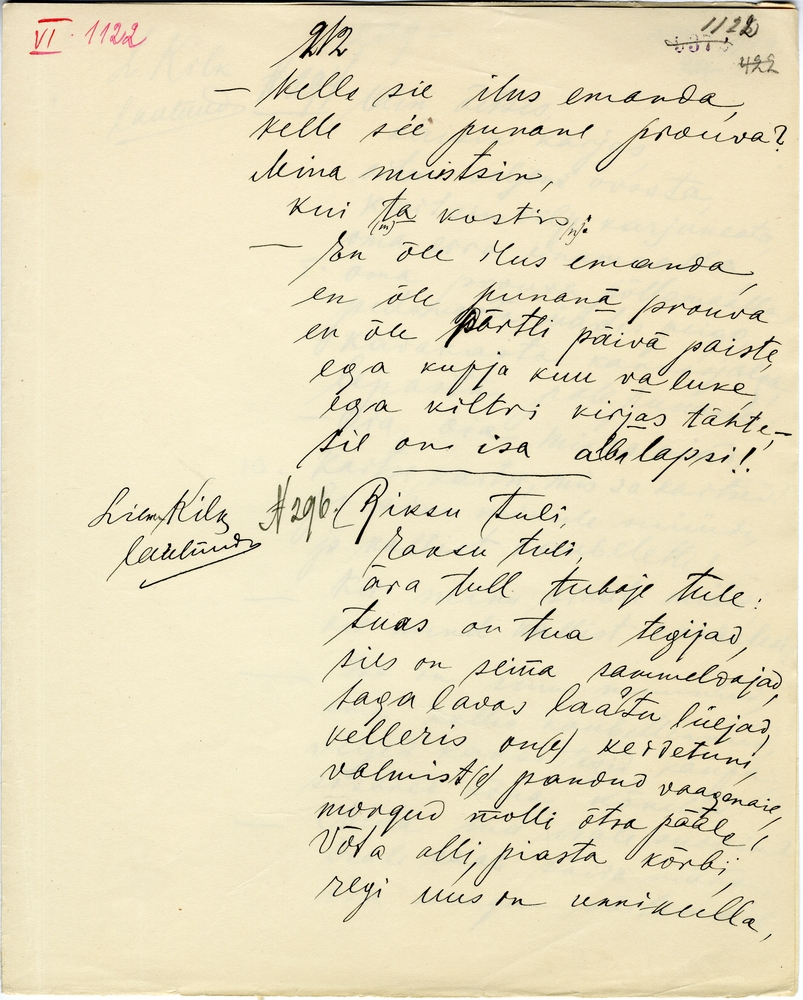 VI. 1122
212
1122
422
– Kelle sie ilus emanda,
kelle sée punane prouva?
Mina muistsin,
kui ta kostis:
(m) (n)
– En õle ilus emanda,
en õle punanä prouva
en õle Pärtli päivä paiste,
ega kupja kuu valuke,
ega kiltri kirjas tähte, –
sie on isa abilapsi!
Liem Kilk
laulund
N 296. Riksu tuli,
raksu tuli,
ära tull tuboje tule:
tuas on tua tegijad,
sies on seina sammeldajad,
taga lavas laastu lüejad,
kelleris on(e) kerdetuni,
valmist(e) pandud vaagenaie,
morgud molli õtsa pääle!
Võta olli, piasta kõrbi,
regi uus on unnikulla,